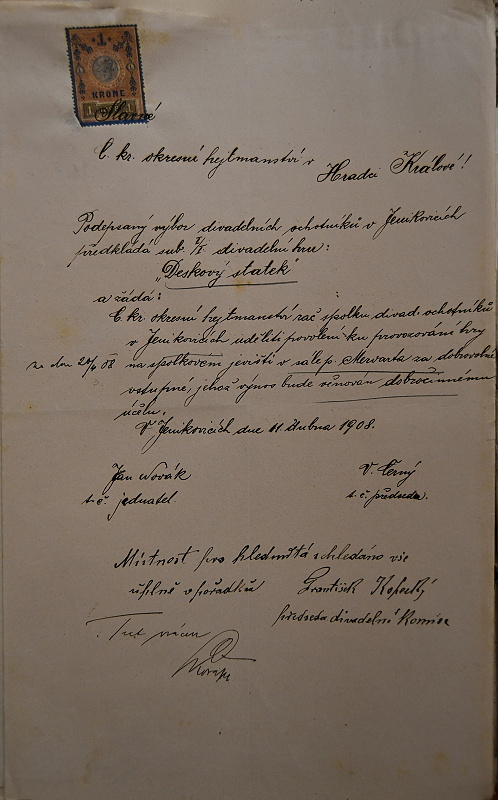 1
KRONE
Slavné
C. kr. okresní hejtmanství v
Hradci Králové!
Podepsaný výbor divadelních ochotníků v Jenikovicích
předkládá sub. I/I. divadelní hru:
„Deskový statek"
a žádá:
C. kr. okresní hejtmanství rač spolku divad. ochotníků
v Jenikovicích uděliti povolení ku provozování hry
na den 26/4 08 na spolkovém jevišti v sále p. Merwarta za dobrovolné
vstupné, jehož výnos bude věnován dobročinnému
účelu.
V Jenikovicích dne 11 dubna 1908.
Jan Novák
V. Černý
t. č. jednatel.
t. č. předseda.
Místnost pro hlediště shledáno vše
úplně v pořádku
František Kopecký
předseda divadelní komise